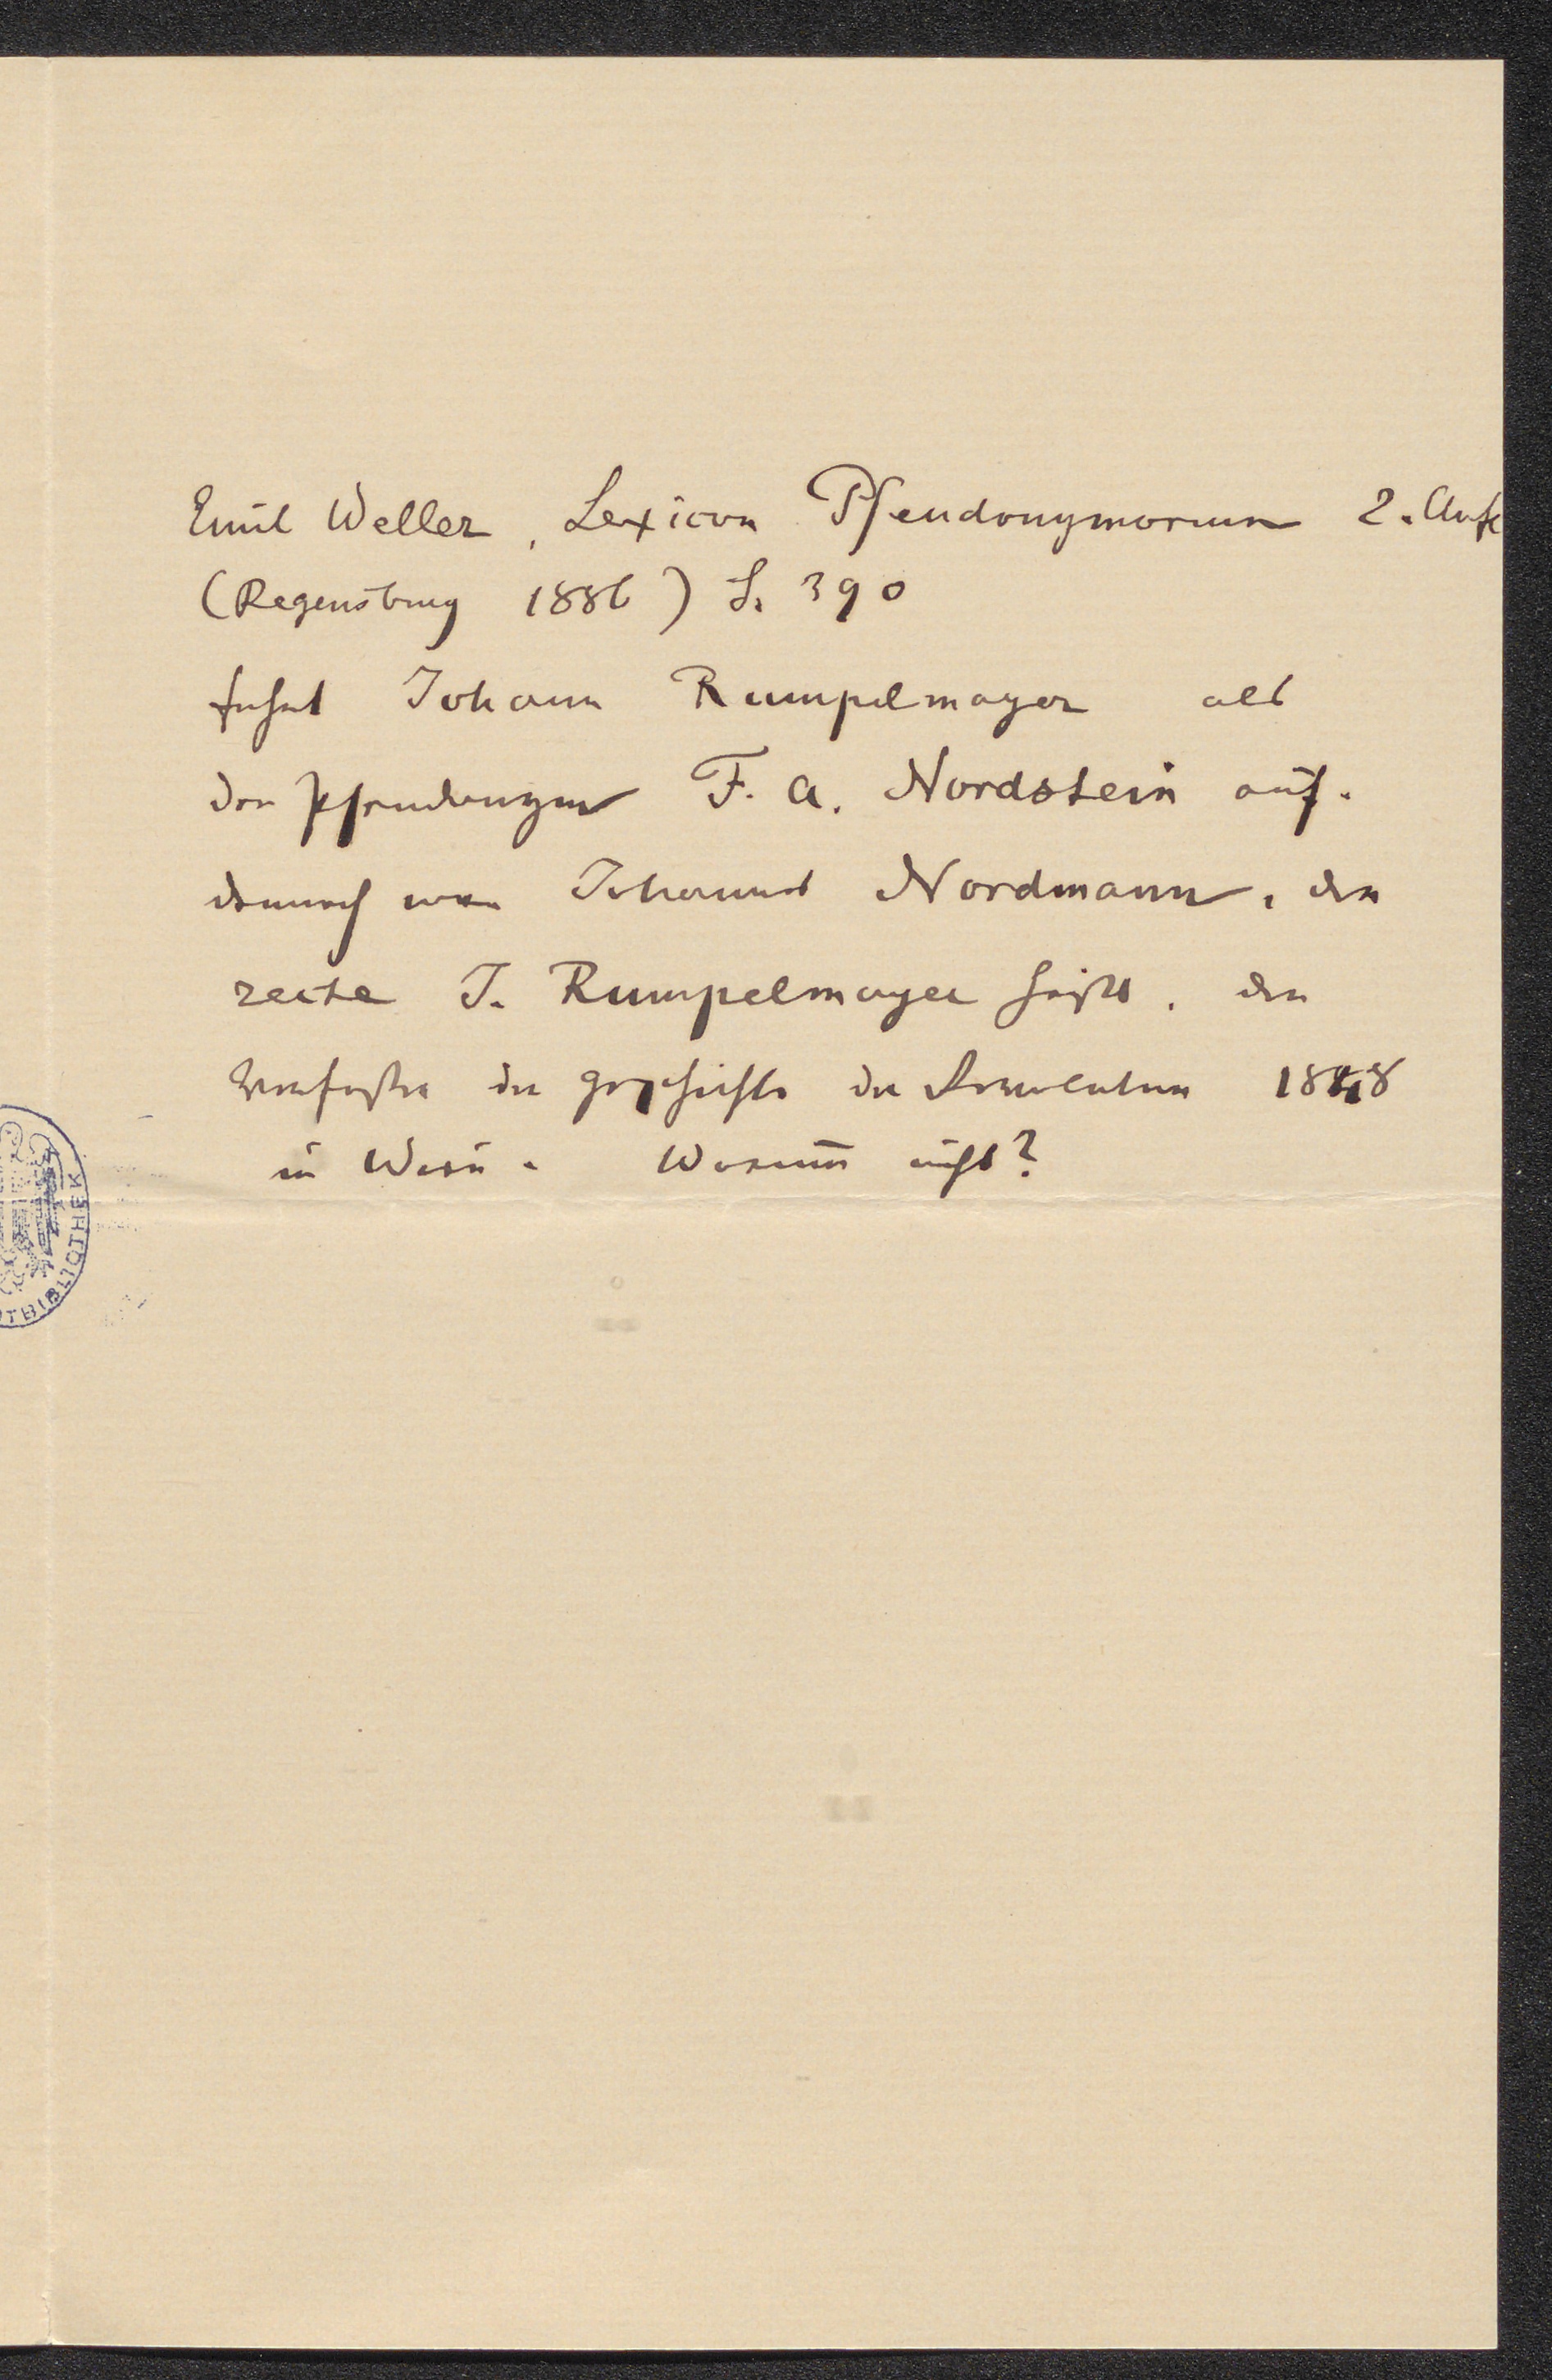 Emil Weller, Lexicon Pseudonymorum 2. Aufl
(Regensburg 1886) S. 390
führt Johann Rumpelmayer als
den Pseudonym F. A. Nordstein auf.
Demnach wäre Johannes Nordmann, der
recte J. Rumpelmayer heißt, der
Verfasser der Geschichte der Revolution 1848
in Wien. Warum nicht?
TBIBLIOTHEK